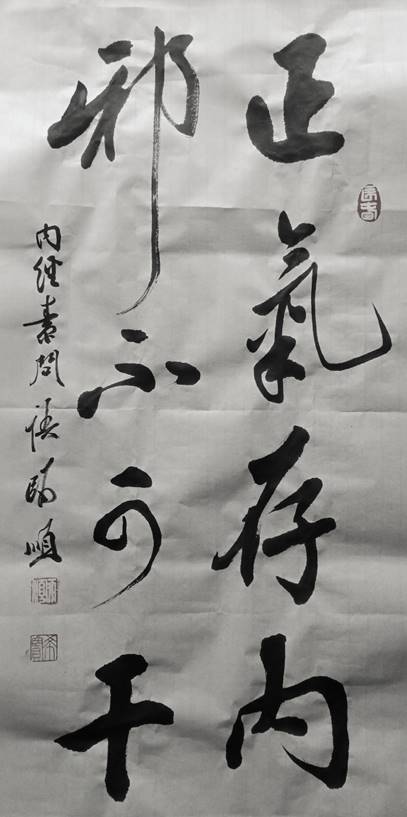 正氣存内
邪不可干
內經素問
順